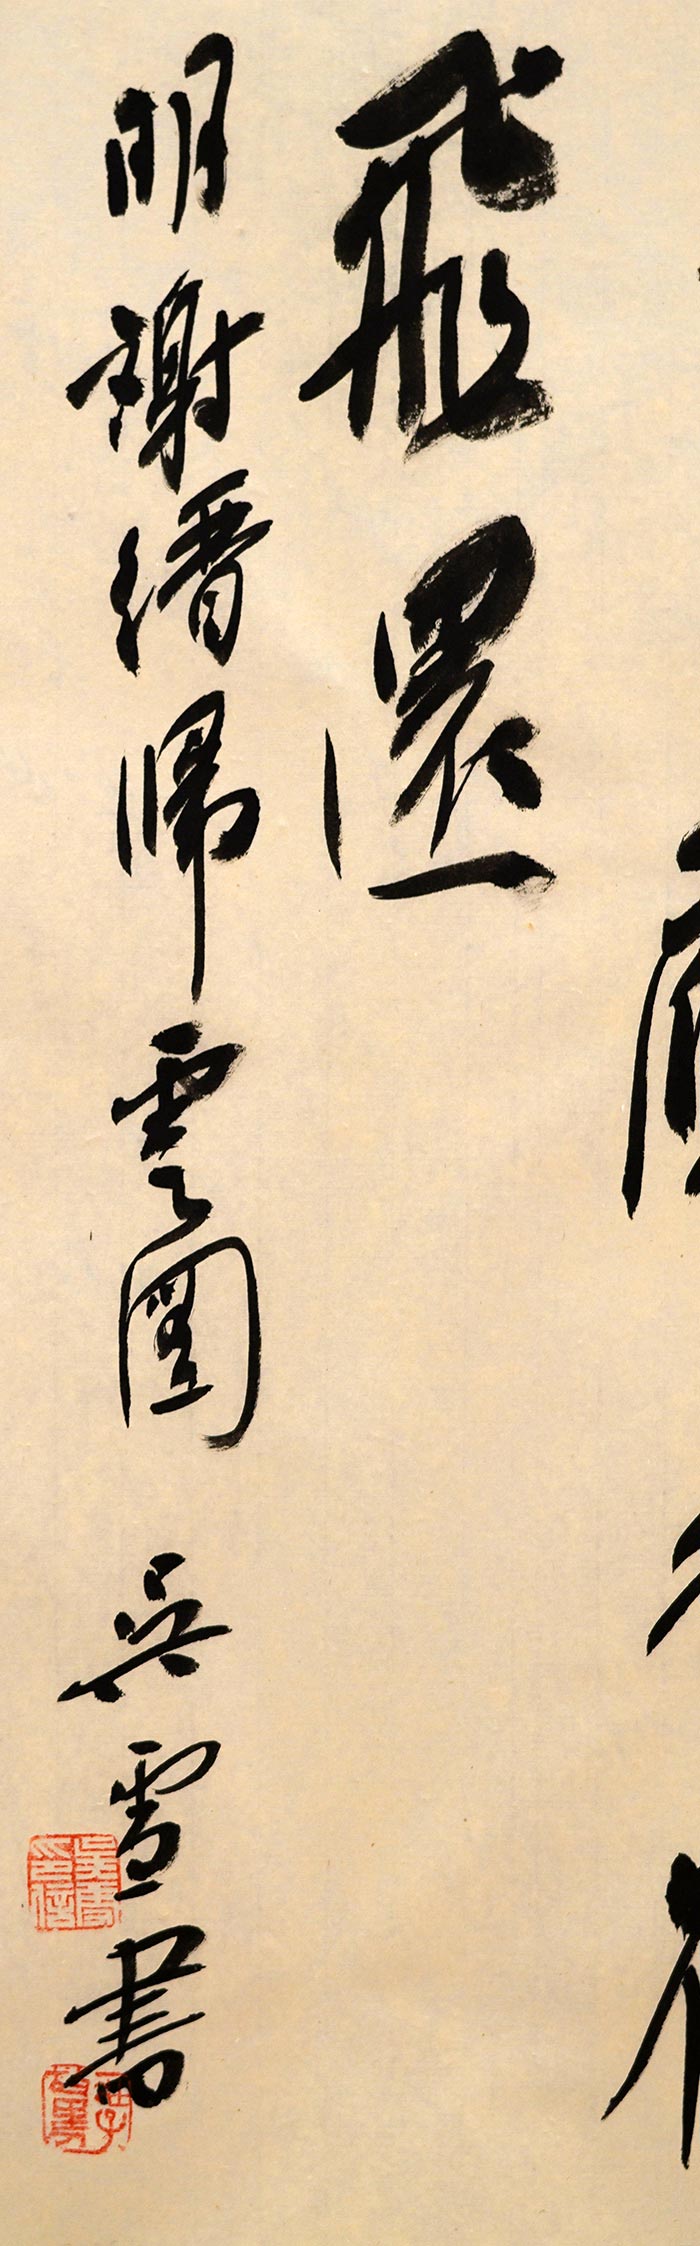 飛還
明謝縉歸雲圖 吳雪書